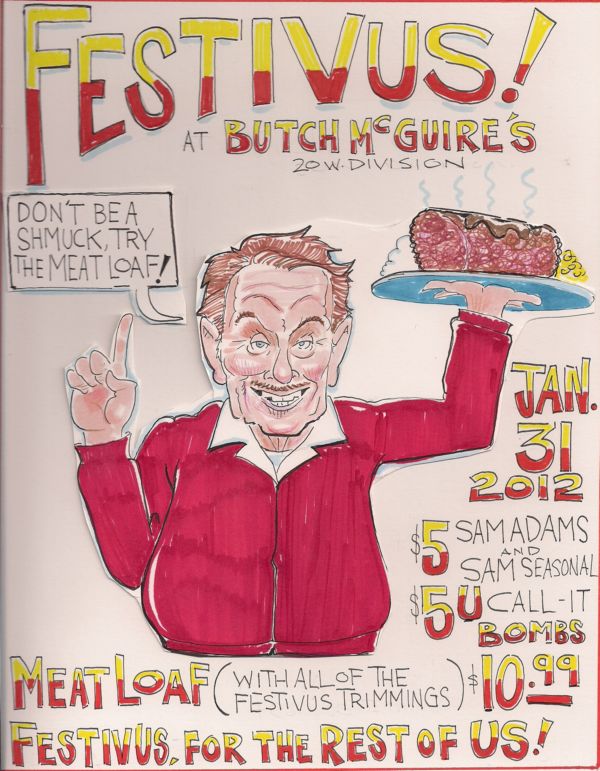 FESTIVUS!
AT BUTCH McGUIRE'S
20 W. DIVISION
DON'T BE A
SHMUCK, TRY
THE MEAT LOAF!
JAN.
31
2012
$5 SAM ADAMS
AND
SAM SEASONAL
$5 U CALL-IT
BOMBS
MEAT LOAF (WITH ALL OF THE
FESTIVUS TRIMMINGS) $10.99
FESTIVUS, FOR THE REST OF US!